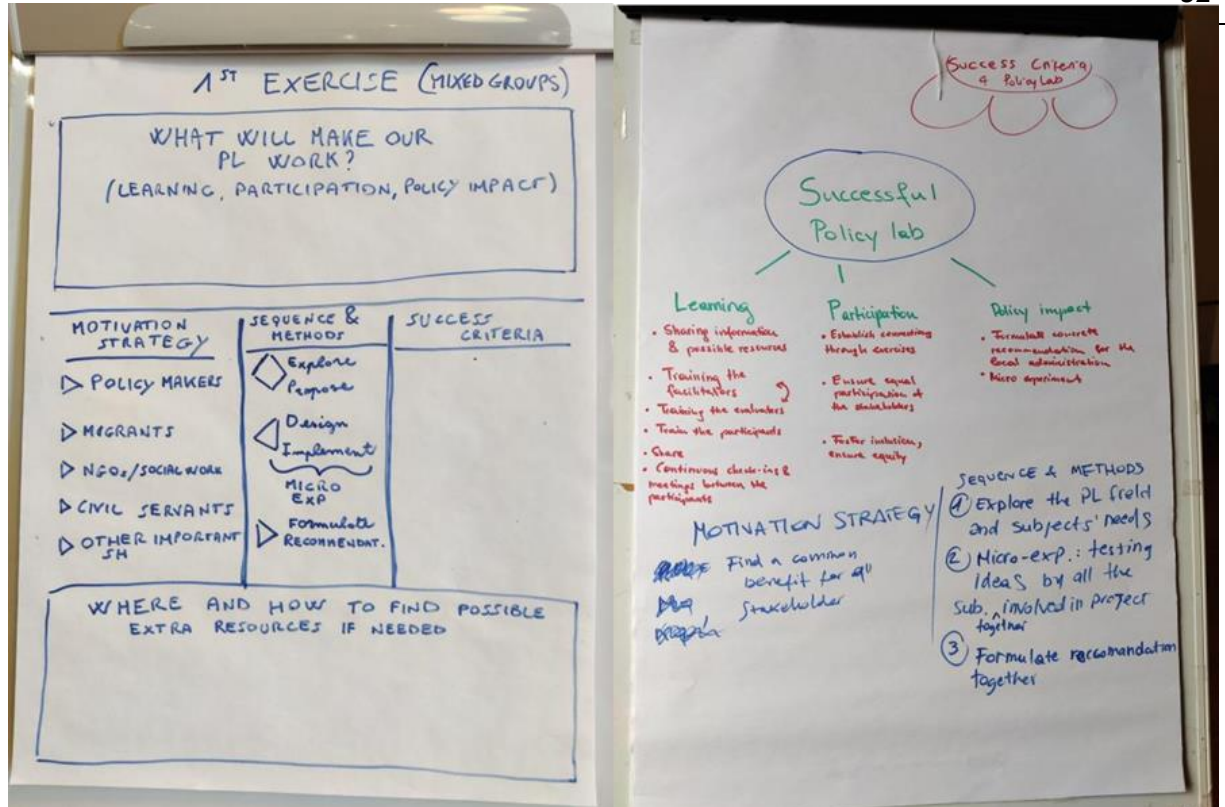 1ST EXERCISE (MIXED GROUPS)
WHAT WILL MAKE OUR
PL WORK?
(LEARNING, PARTICIPATION, POLICY IMPACT)
MOTIVATION
STRATEGY
POLICY MAKERS
MIGRANTS
NGOs/SOCIAL WORK
CIVIL SERVANTS
OTHER IMPORTANT
SH
SEQUENCE &
METHODS
Explore
Propose
Design
Implement
MICRO
EXP
Formulate
RECOMMENDAT.
SUCCESS
CRITERIA
WHERE AND HOW TO FIND POSSIBLE
EXTRA RESOURCES IF NEEDED
Success Criteria
Policy Lab
Successful
Policy lab
Learning
• Sharing information
& possible resources
• Training the
facilitators
• Training the evaluators
• Train the participants
• Share
• Continuous check-ins &
meetings between the
participants
Participation
• Establish connecting
through exercises
• Ensure equal
participation of
the stakeholders
• Foster inclusion,
ensure equity
Policy impact
• Formulate concrete
recommendation for the
local administration
• Micro experiment
MOTIVATION STRATEGY
Find a common
benefit for all
Stakeholder
SEQUENCE & METHODS
1 Explore the PL field
and subjects' needs
2 Micro-exp.: testing
ideas by all the
sub. involved in project
together
3 Formulate reccomandation
together